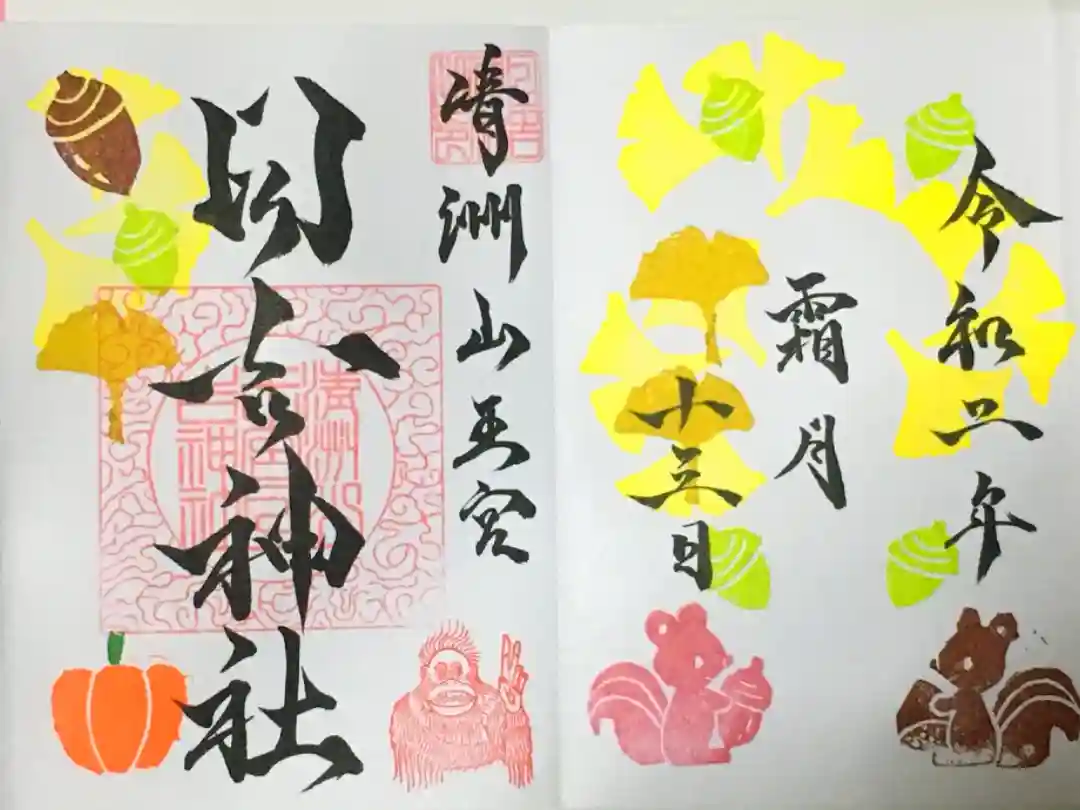 令和二年
霜月
十三日
清洲山王宮
日吉神社